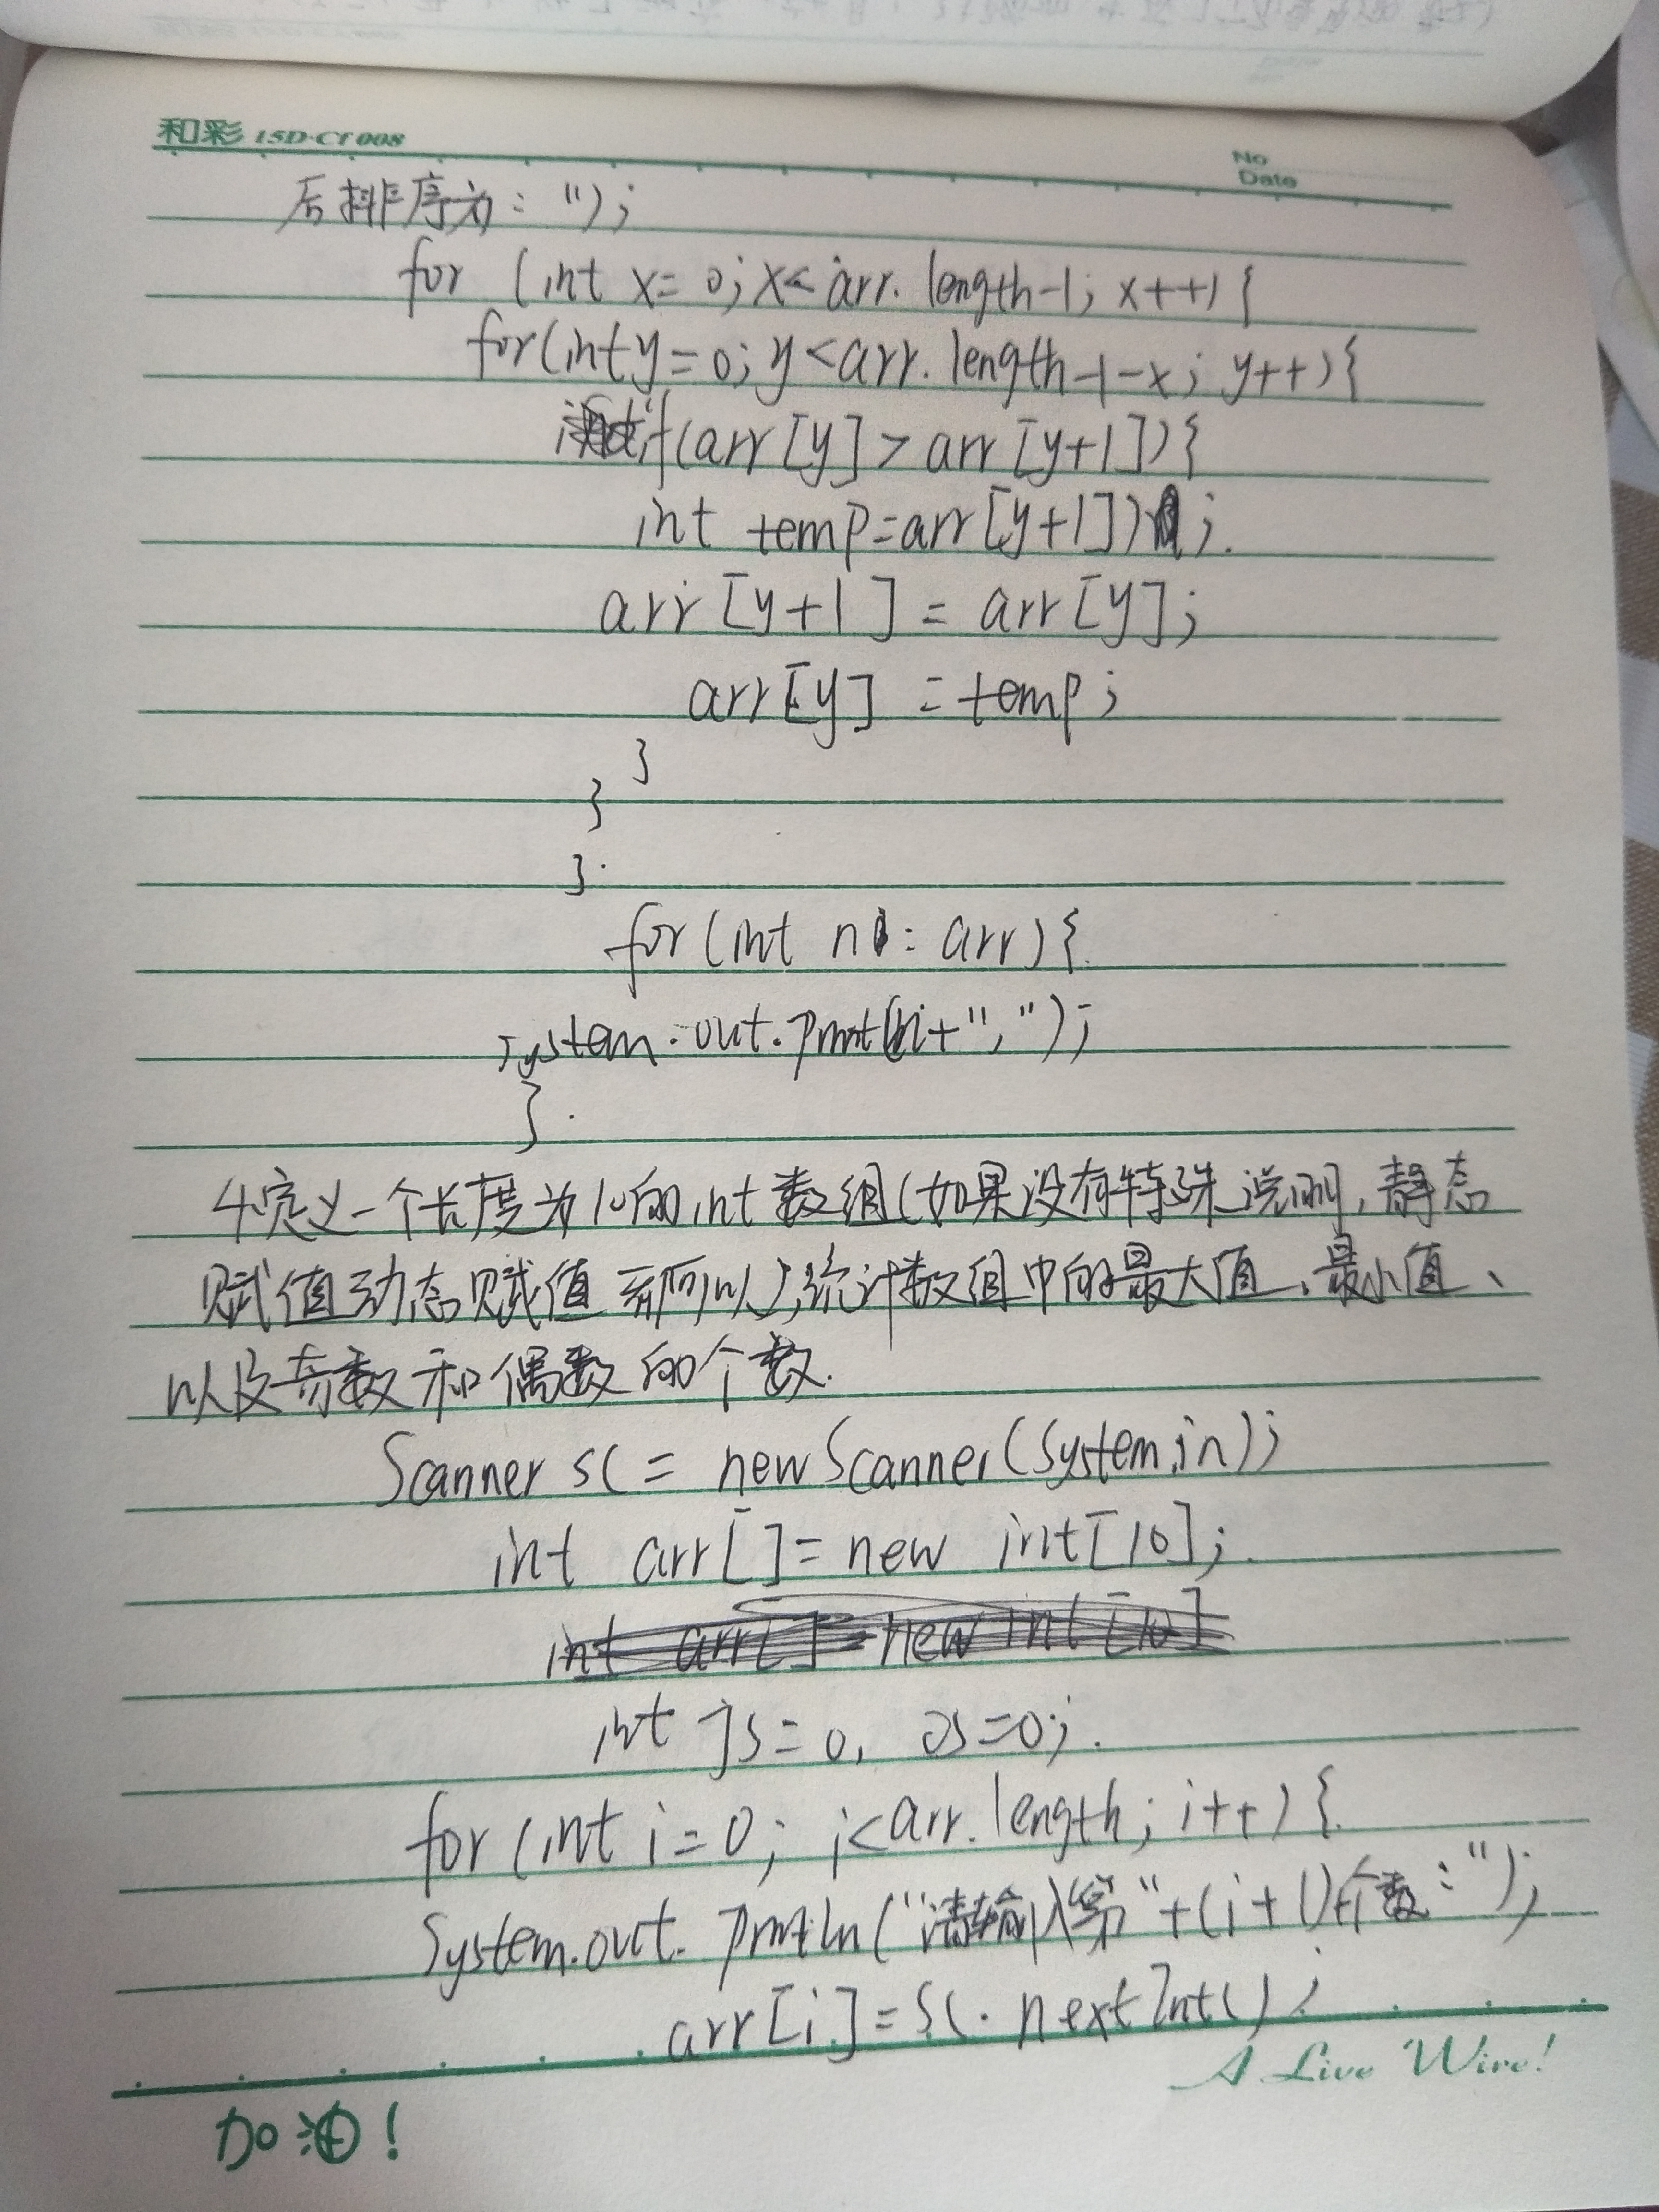 和彩 15D-CY008
No
Date
后排序为：");
for (int x=0; x<arr.length-1; x++){
for(int y=0; y<arr.length-1-x; y++){
if(arr[y]>arr[y+1]){
int temp=arr[y+1]);
arr[y+1] = arr[y];
arr[y] = temp;
}
}
}
for(int n: arr){
System.out.print(n+",");
}
4定义一个长度为10的int数组(如果没有特殊说明,静态
赋值动态赋值都可以),统计数组中的最大值、最小值、
以及奇数和偶数的个数.
Scanner sc = new Scanner(System.in);
int arr[]=new int[10];
int arr[]=new int[10]
int js=0, os=0;
for (int i=0; i<arr.length; i++){
System.out.println("请输入第"+(i+1)+个数:");
arr[i]=sc.nextInt();
A Live Wire!
加油!